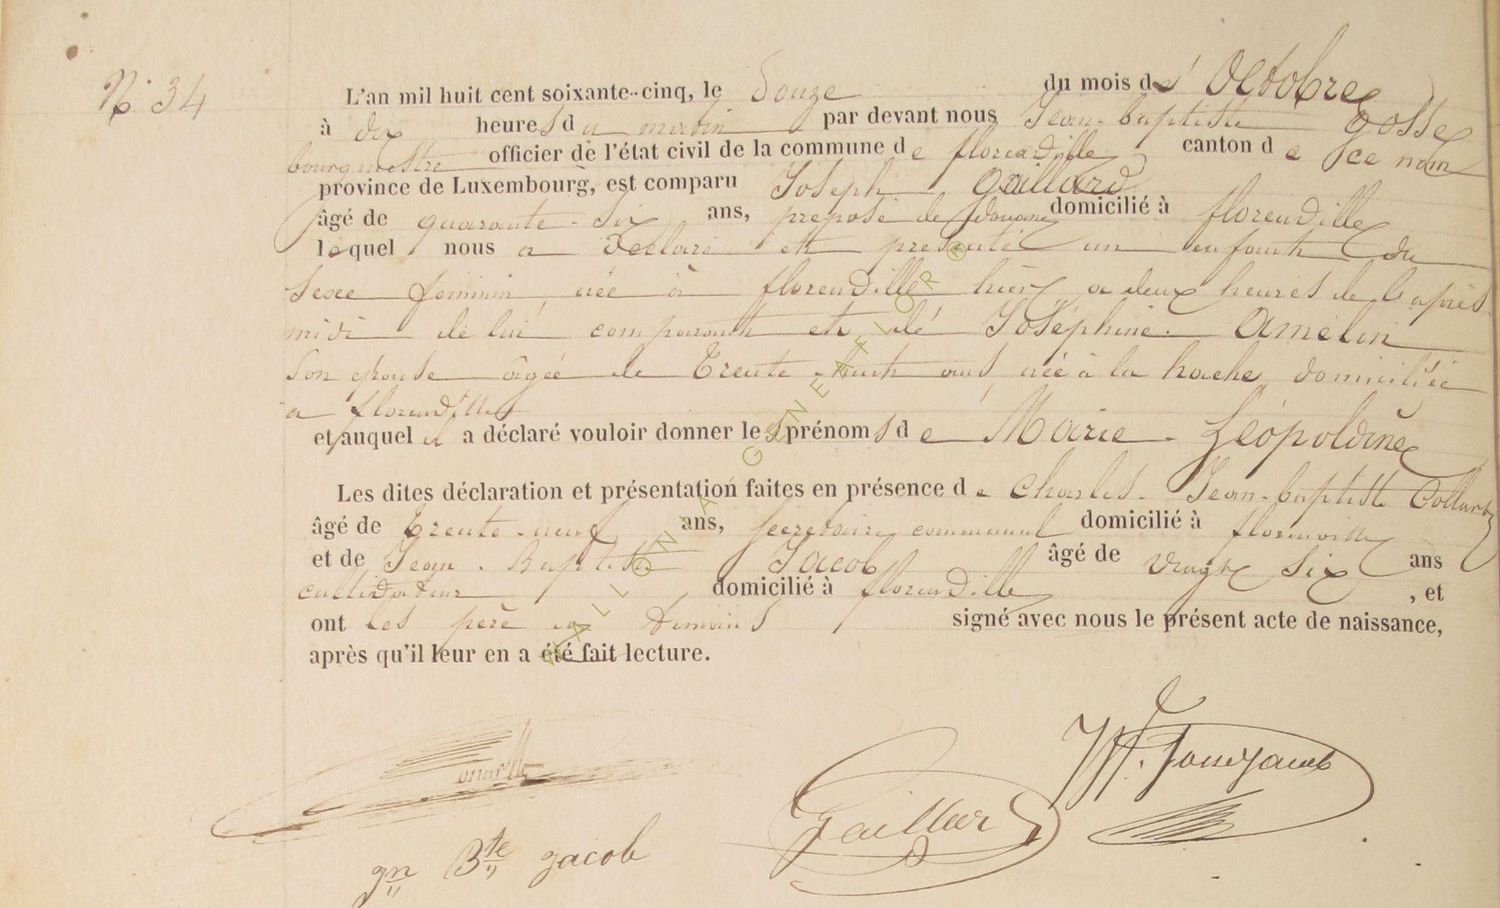 N° 34
L'an mil huit cent soixante-cinq, le Douze du mois d'Octobre
à dix heures du matin par devant nous Jean-baptiste Gosse
bourgmestre officier de l'état civil de la commune de florenville canton de
province de Luxembourg, est comparu Joseph Gaillard
âgé de quarante-six ans, préposé de douane domicilié à florenville
lequel nous a déclaré et présenté un enfant du
sexe féminin, née à florenville hier a deux heures de l'après
midi de lui comparant et de Joséphine Amélin
son épouse âgée de Trente-huit ans, née à la hache domiciliée
a florenville
et auquel il a déclaré vouloir donner les prénoms de Marie-Léopoldine
Les dites déclaration et présentation faites en présence de Charles-Jean-baptiste
âgé de trente-neuf ans, secretaire communal domicilié à florenville
et de Jean-Baptiste Jacob âgé de vingt six ans
cultivateur domicilié à florenville, et
ont les père et témoins signé avec nous le présent acte de naissance,
après qu'il leur en a été fait lecture.
Gaillard
gn Bte jacob